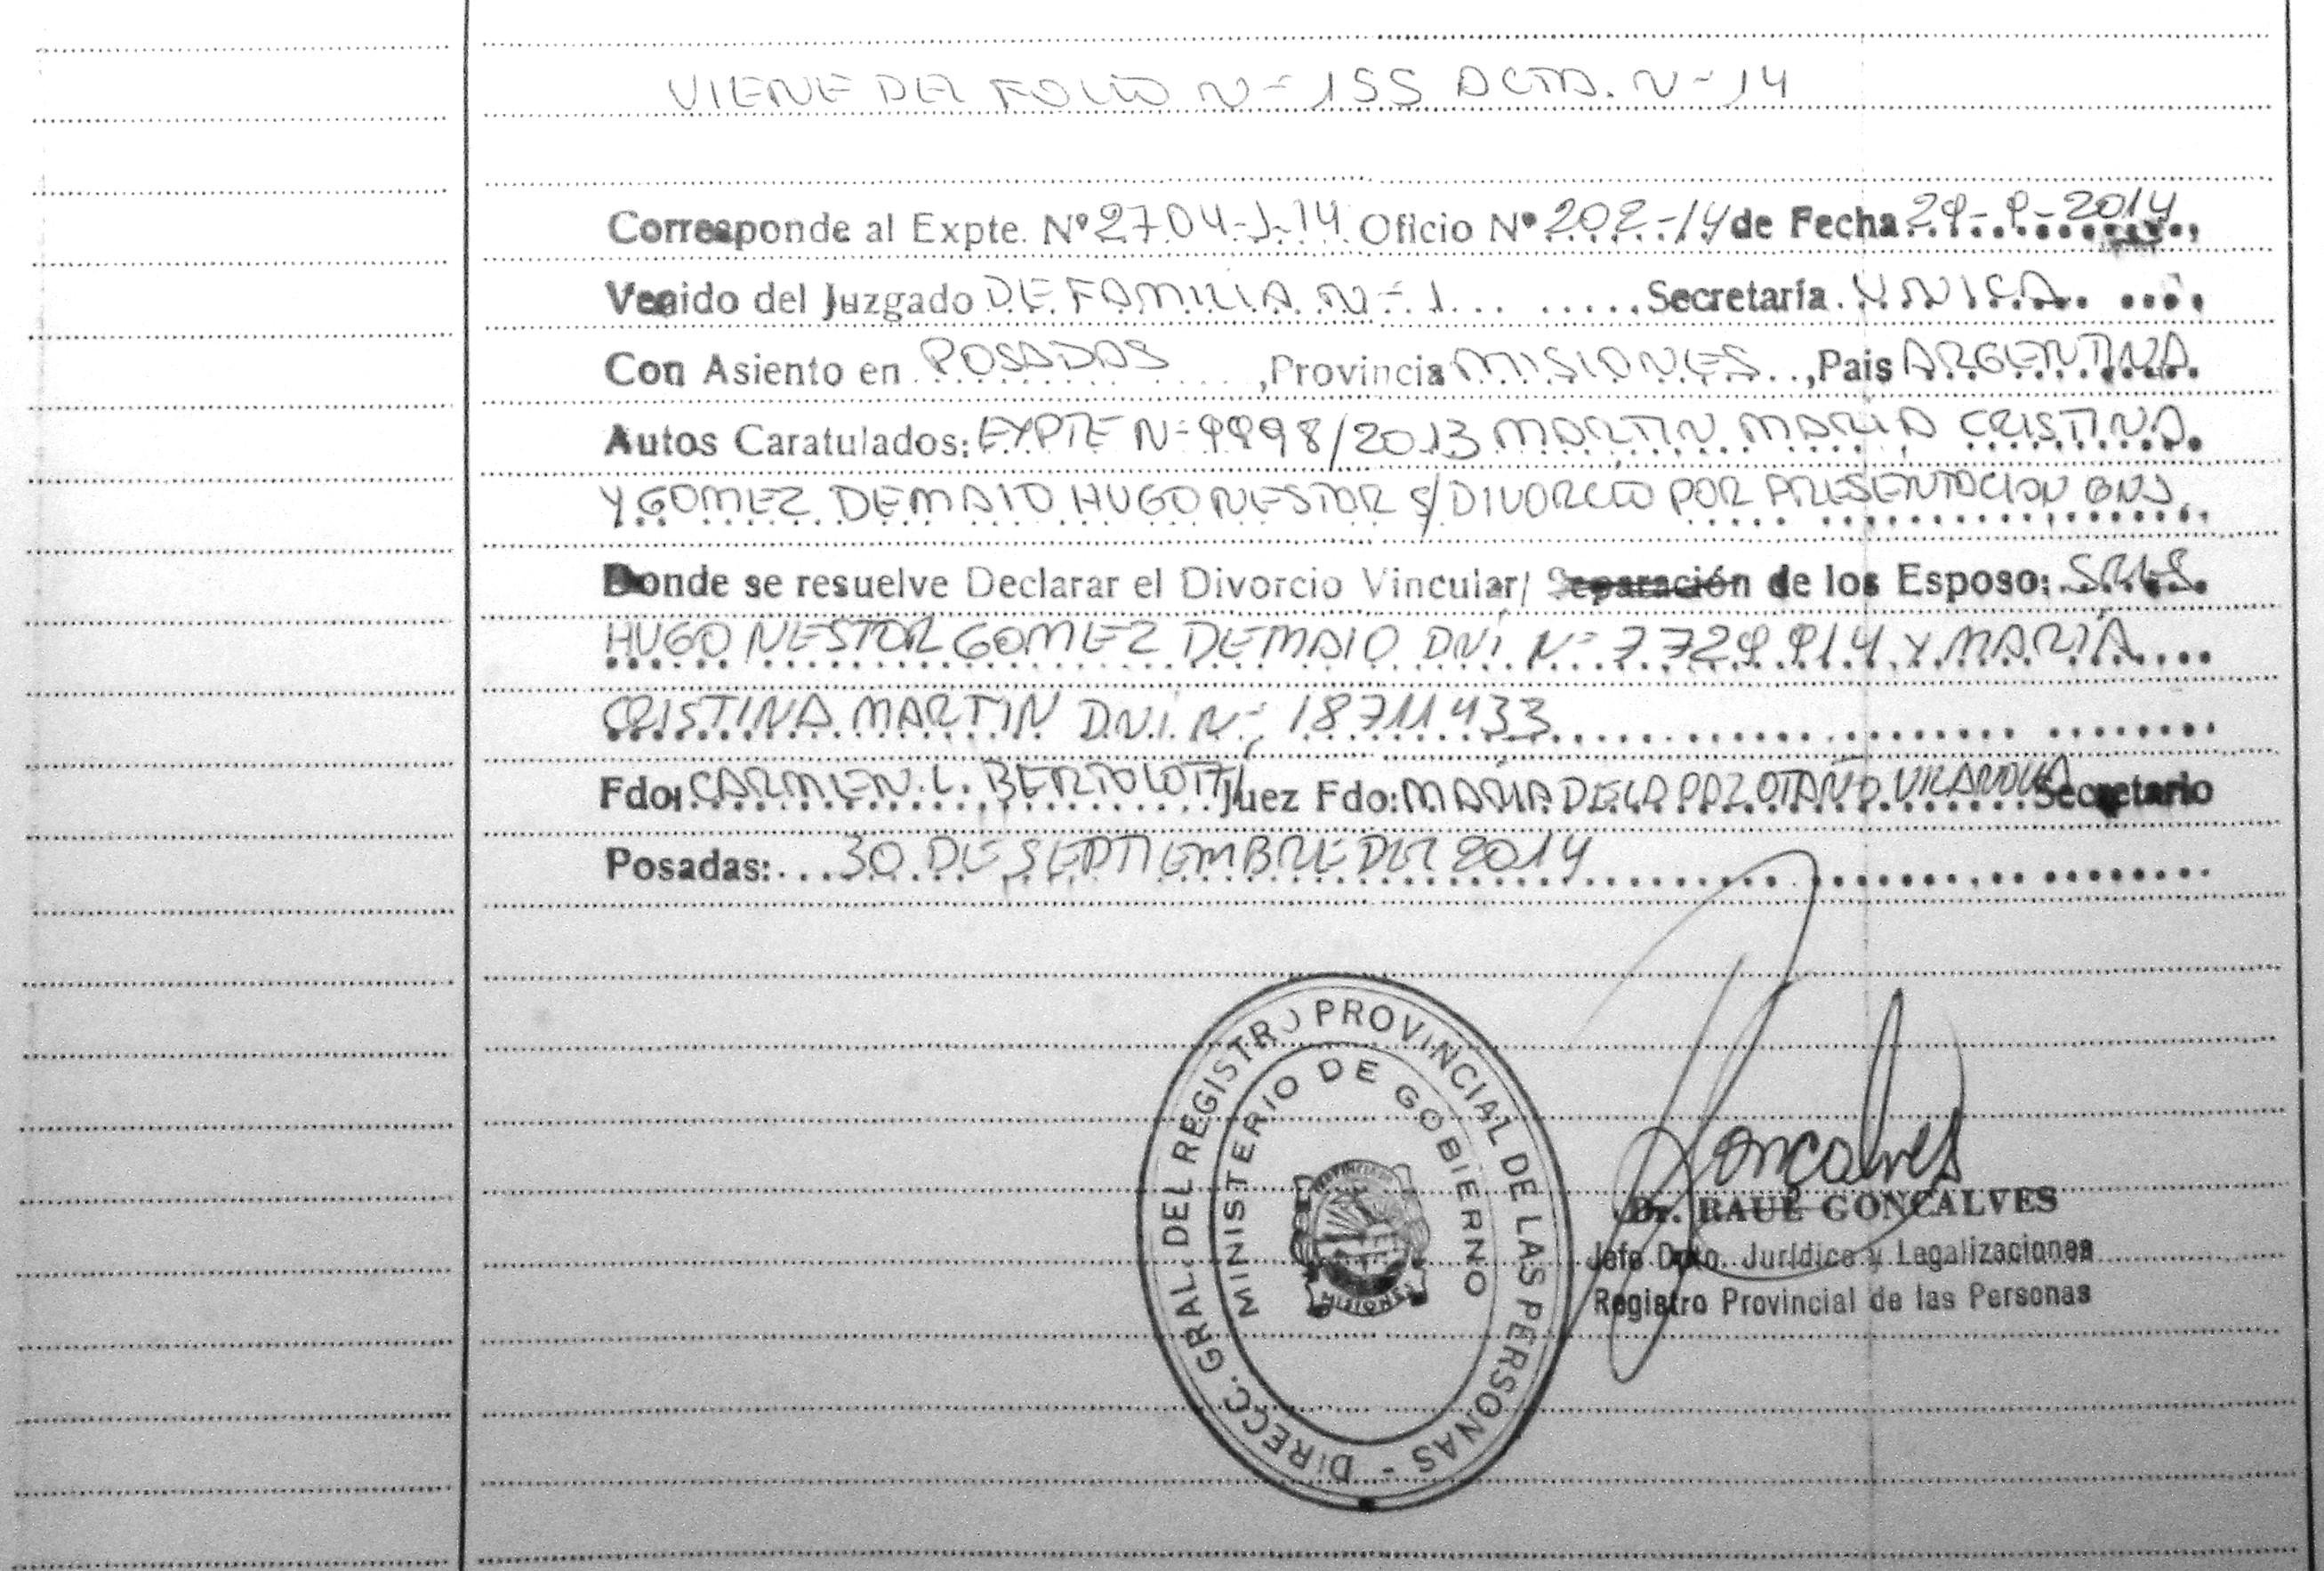 VIENE DEL FOLIO N= 155 ACTA. N= 14
Corresponde al Expte. Nº 2704-J-14 Oficio Nº 202-14 de Fecha 29-9-2014,
Venido del Juzgado DE FAMILIA N=1 , Secretaría UNICA
Con Asiento en POSADAS , Provincia MISIONES , Pais ARGENTINA
Autos Caratulados: EXPTE N= 9998/2013 MARTIN MARIA CRISTINA
Y GOMEZ DEMAIO HUGO NESTOR S/ DIVORCIO POR PRESENTACION
Donde se resuelve Declarar el Divorcio Vincular/ Separación de los Esposo: SRES
HUGO NESTOR GOMEZ DEMAIO DNI N= 7.729.914 Y MARIA
CRISTINA MARTIN D.N.I. N= 18711433
Fdo: CARMEN. L. BERTOLOTTI Juez Fdo: MARIA DE LA PAZ OTAÑO VILANOVA Secretario
Posadas: 30 DE SEPTIEMBRE DEL 2014
DIRECC. GRAL. DEL REGISTRO PROVINCIAL DE LAS PERSONAS -
MINISTERIO DE GOBIERNO
MISIONES
Goncalves
Dr. RAUL GONCALVES
Jefe Dpto. Jurídico y Legalizaciones
Registro Provincial de las Personas